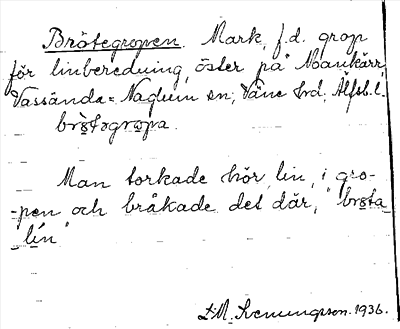 Brötegropen. Mark, f.d. grop
för linberedning, öster på Moankärr,
Vassända-Naglum sn, Väne hrd, Älfsb. l.
brötogropa.
Man torkade hör, lin, i gro-
-pen och bråkade det där, "brota
lin"
L.M. Svenungsson. 1936.